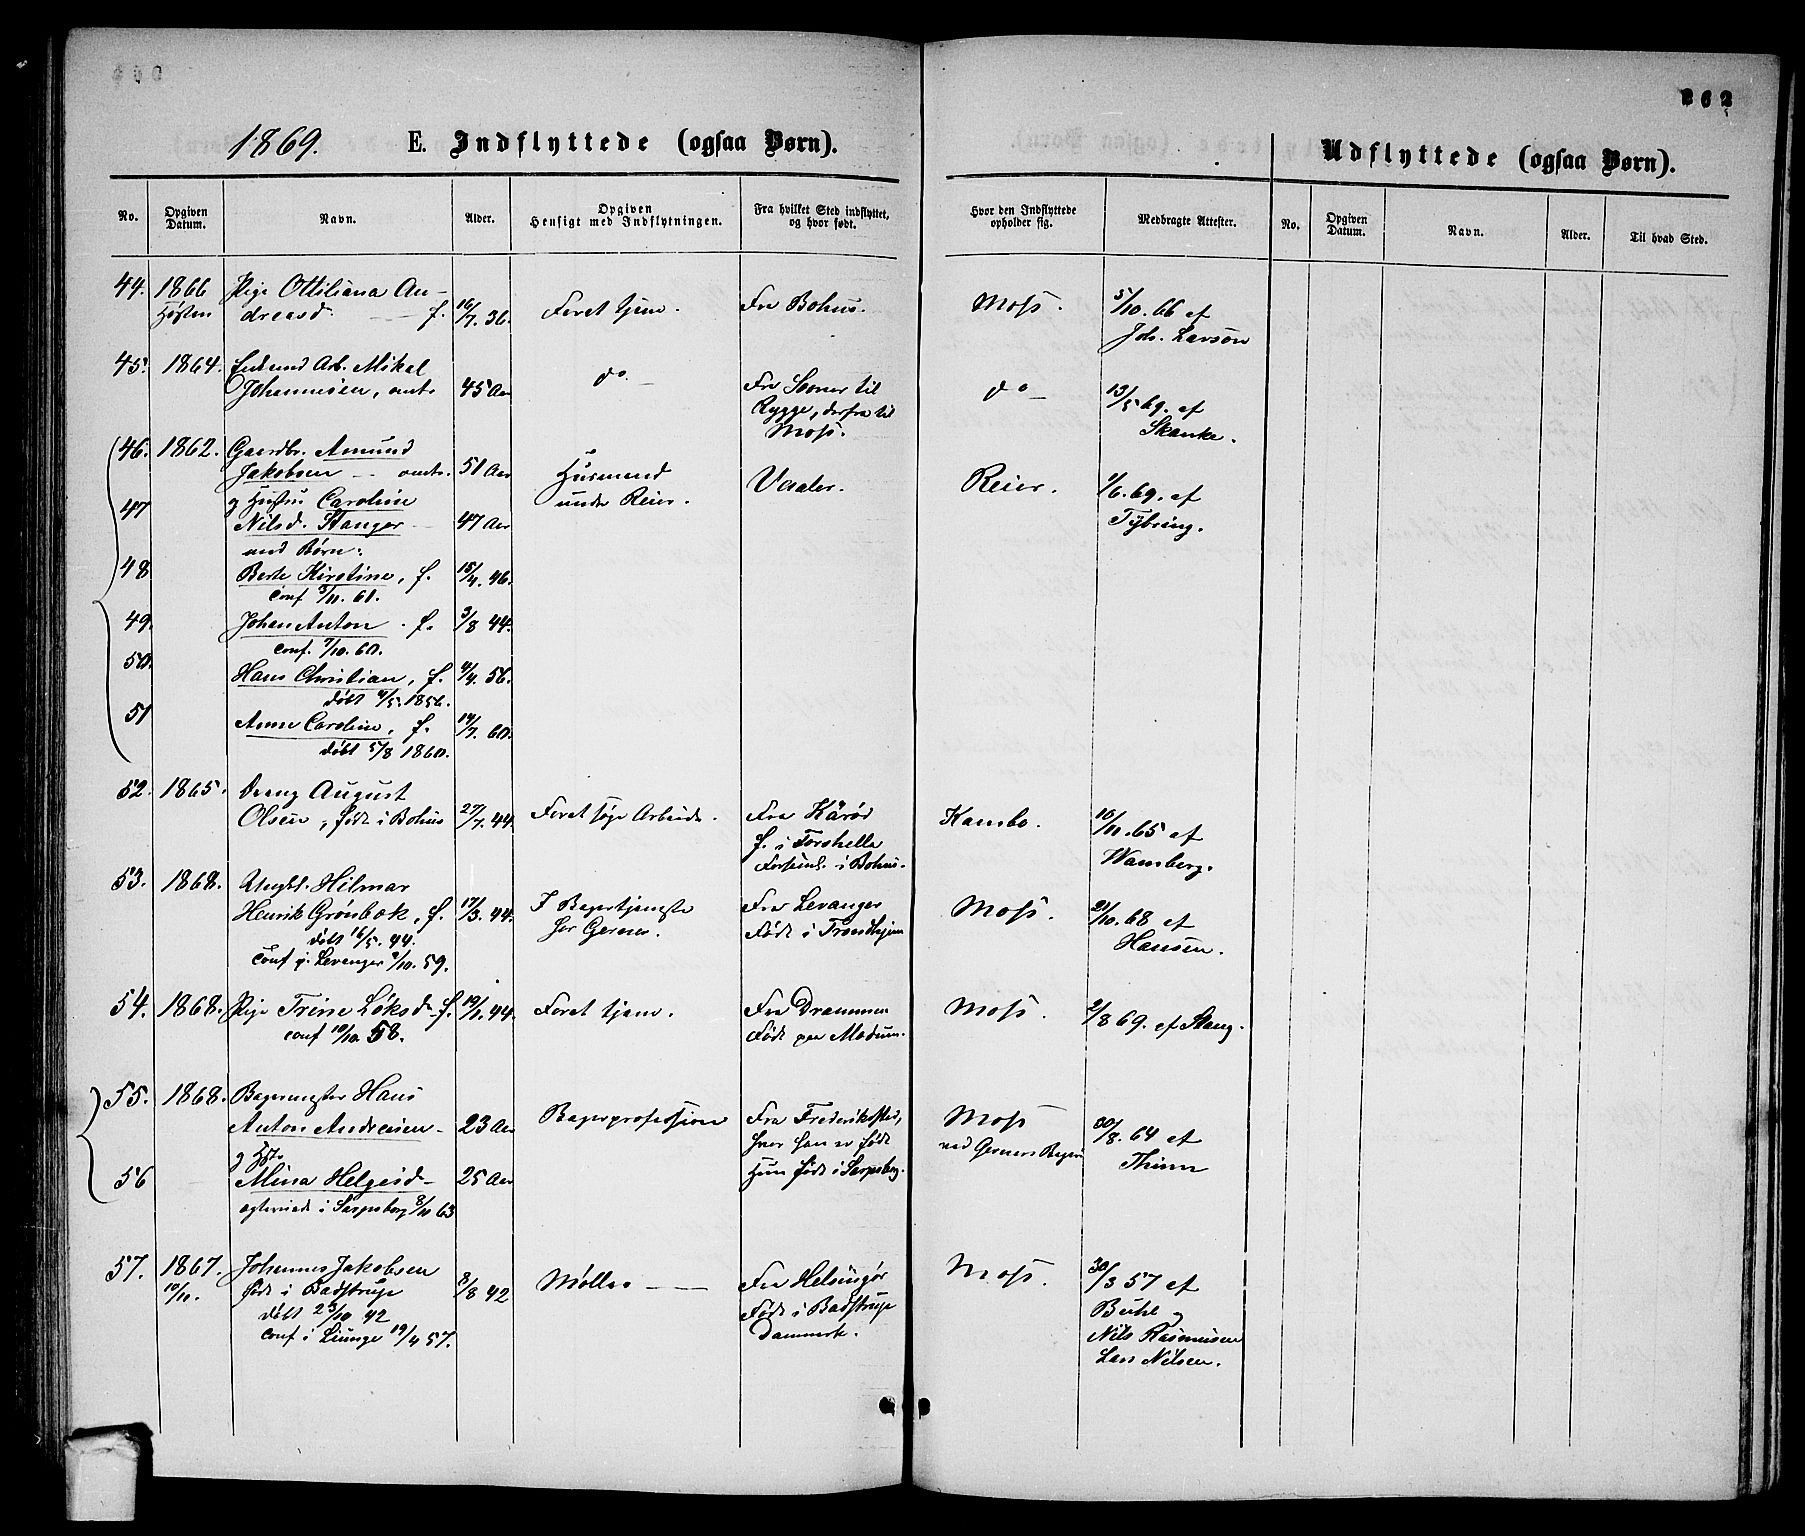 262
1869. E. Indflyttede (ogsaa Børn).
Udflyttede (ogsaa Børn).
No. Opgiven Datum. Navn. Alder. Opgiven Hensigt med Indflytningen. Fra hvilket Sted indflyttet, og hvor født. Hvor den Indflyttede opholder sig. Medbragte Attester. No. Opgiven Datum. Navn. Alder. Til hvad Sted.
44. 1866 Pige Ottiliana An-
Høsten dreasd. f. 16/7. 36. Foret tjene. Fra Bohus. Moss. 5/10. 66 af
Joh. Larson
45. 1864. Arb. Mikal
Johannesen, omtr. 45 Aar do. Fra Sooner til do 13/5 69. af
Rygge, derfra til Skanke.
Moss.
46. 1862. Gaardbr. Amund
Jakobsen omtr. 51 Aar Husmand Vaaler. Reier. 1/6. 69. af
47 og Hustru Caroline under Reier. Tybring.
Nilsd. Stanger 47 Aar
med Børn:
48 Berte Kirstine, f. 15/4. 46.
conf 3/11. 61.
49. Johan Anton f. 3/8 44.
conf. 7/10. 60.
50. Hans Christian, f. 4/4. 56.
døbt 4/5. 1856.
51 Anne Caroline, f. 14/7. 60.
døbt 5/8 1860.
52. 1865. Dreng August
Olsen, født i Bohus 27/7. 44. Foret søge Arbeide. Fra Kärød Kambo. 10/11. 65 af
f. i Forshella Wamberg.
Forsaml. i Bohus.
53. 1868. Ungkl. Hilmar
Henrik Grönbæk, f. 17/3. 44. I Bagertjeneste Fra Levanger Moss. 21/10. 68 af
døbt 16/5. 44. hos Gerner. Født i Trondhjem Hansen.
conf i Levanger 2/10. 59.
54. 1868. Pige Trine Løksd f. 19/1. 44. Foret tjene. Fra Drammen Moss. 2/8 69. af Stang.
conf 10/10. 58. Født paa Modum.
55. 1868. Bagermester Hans
Anton Andreasen 23 Aar Bagerprofession Fra Frederiksstad, Moss 30/8. 64 af
og Hstr. hvor han er født ved Gerners Bageri Thinn
56 Mina Helgesd 25 Aar Hun født i Sarpsborg.
egteviede i Sarpsborg 8/11 63
57. 1867. Johannes Jakobsen
10/10. født i Badstrup 8/8 42 Møller Fra Helsingør Moss. 30/3 57 af
døbt 23/10 42 Født i Badstrup Buhl og
conf i Liunge 19/4 57. Danmark. Nils Rasmusen
Lars Nilsen.